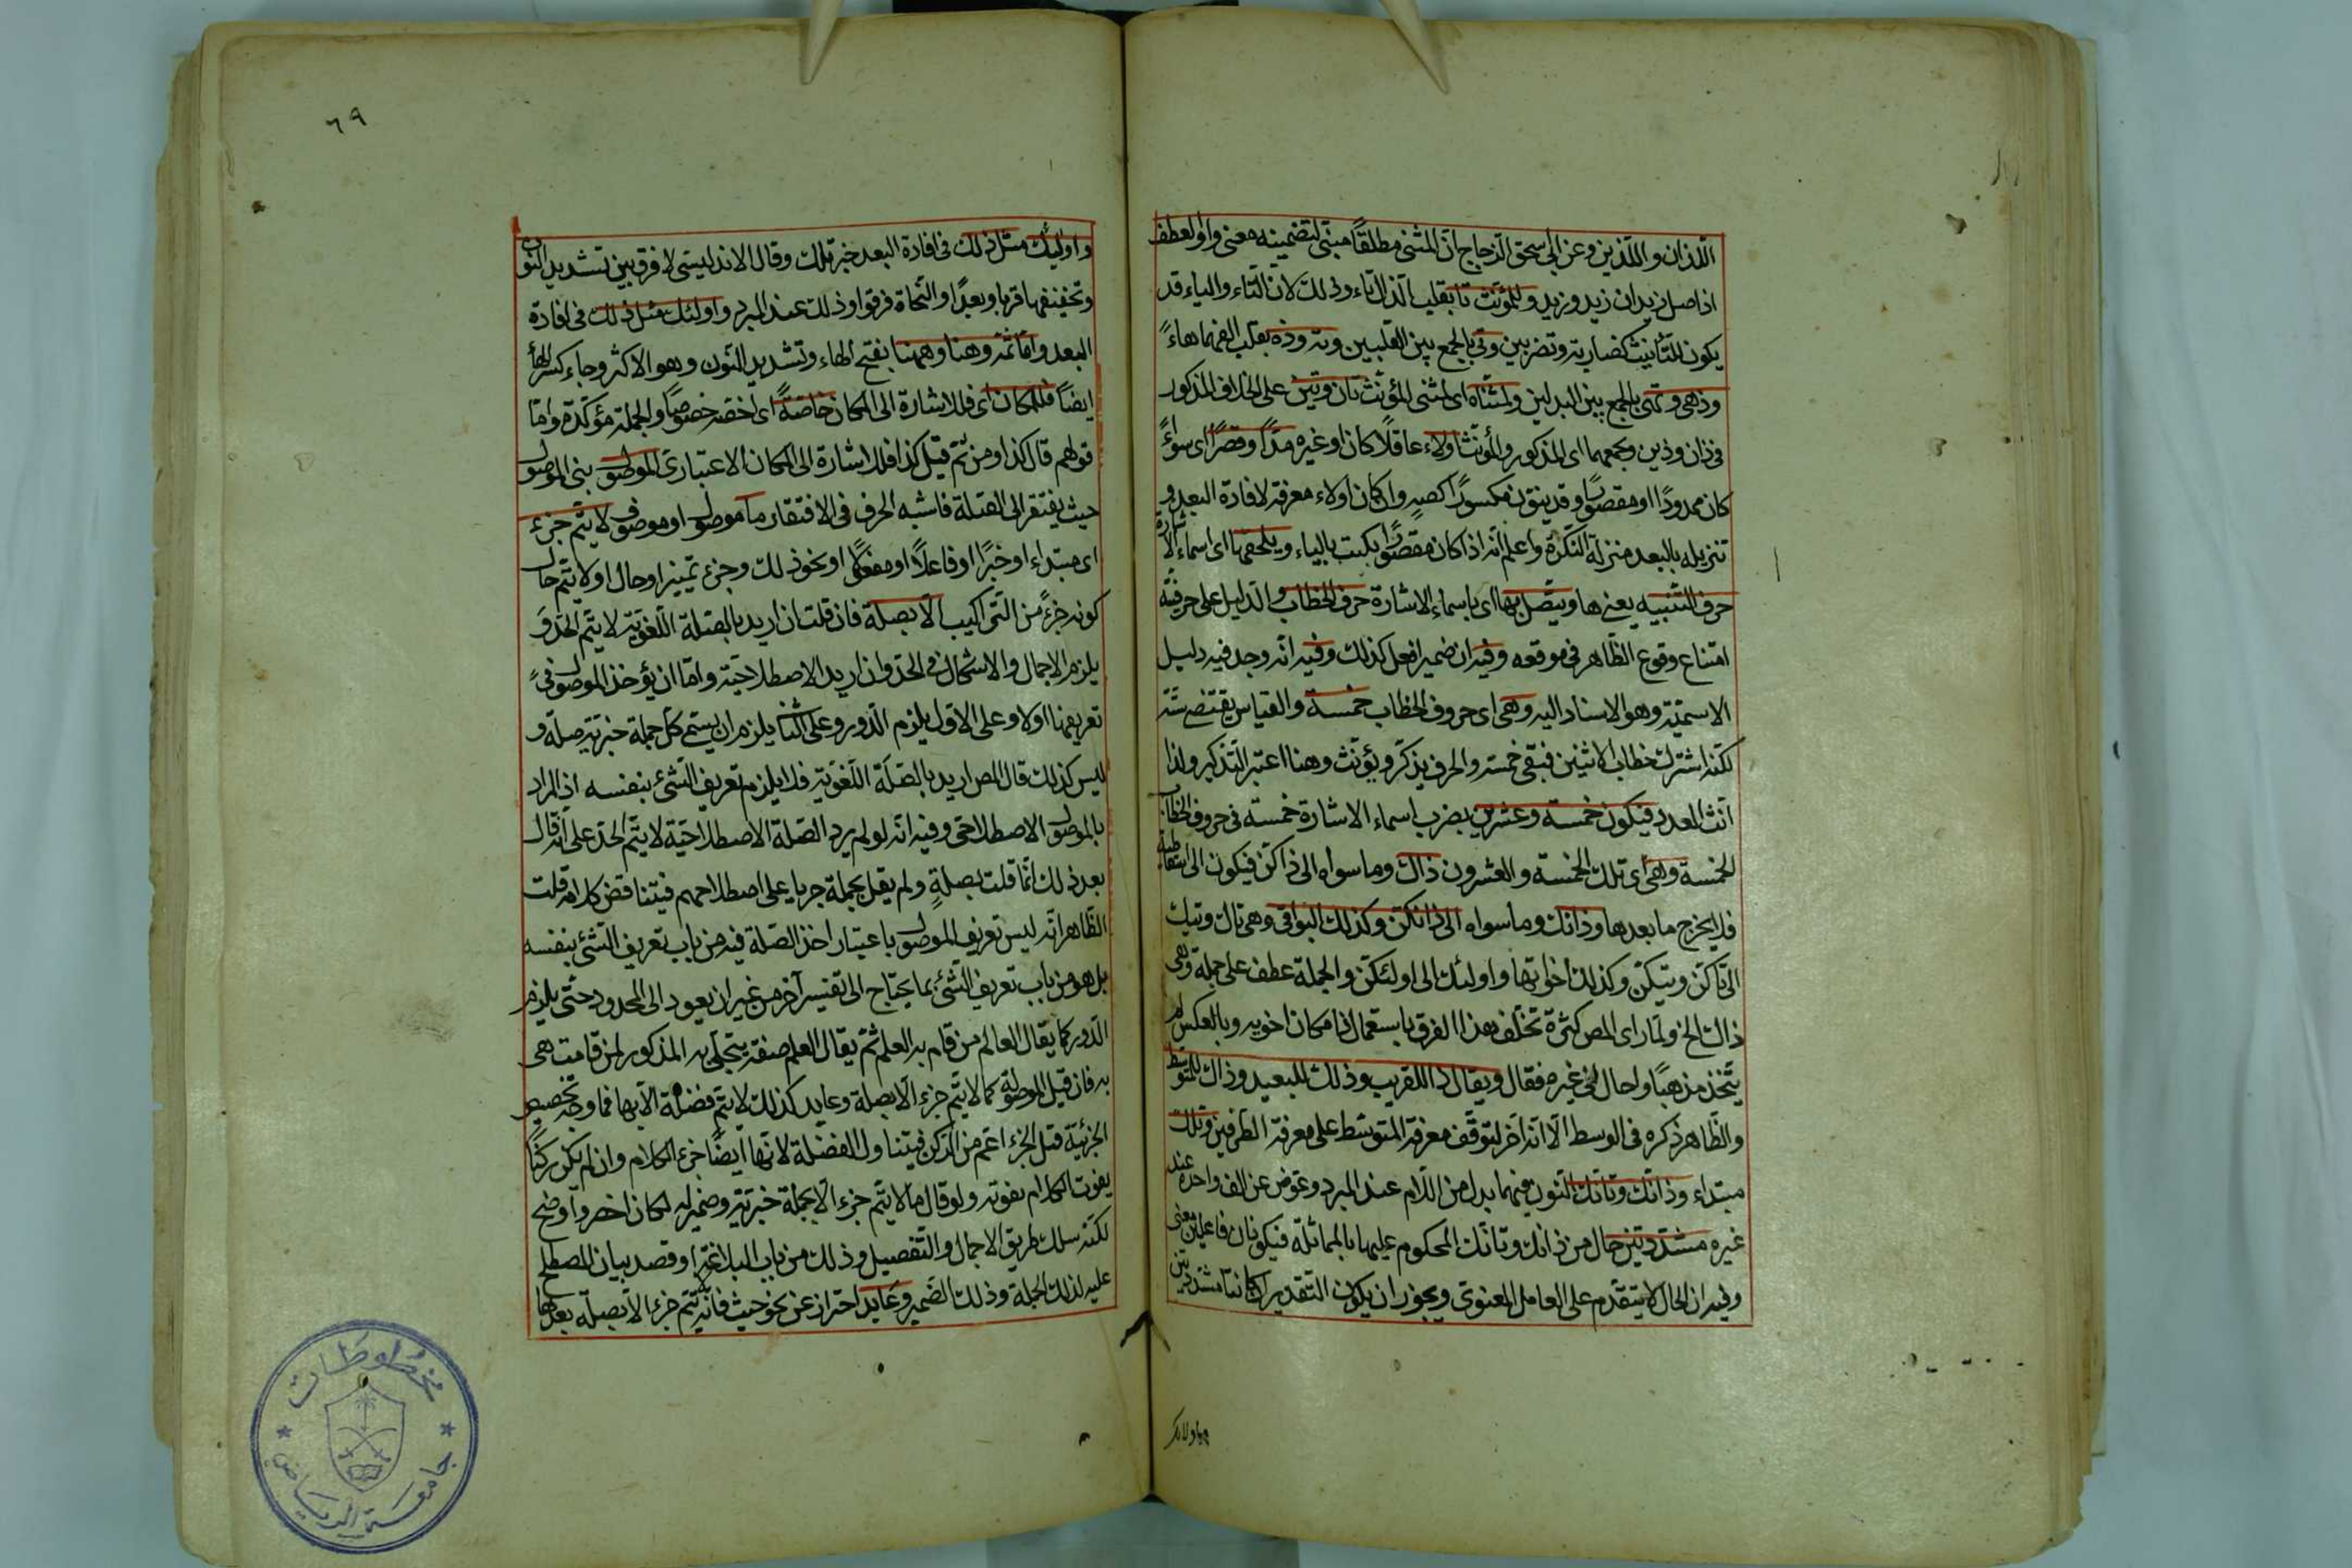 اللذان واللذين وعن ابي اسحق الزجاج ان المثنى مطلقا مبني لتضمينه معنى واو العطف
اذ اصل زيدان زيد وزيد وللمؤنث تا بقلب الذال تاء وذلك لان التاء والياء قد
يكون للتأنيث كضاربة وتضربين وتي بالجمع بين القلبين وته وذه بقلب الفهما هاء
وذهي وتهي بالجمع بين البدلين ولمثناه اى لمثنى المؤنث تان وتين على الخلاف المذكور
في ذان وذين وبجمعهما اى المذكور والمؤنث اولاء عاقلا كان او غيره مدا وقصرا اى سواء
كان ممدودا او مقصورا وقد ينون مكسورا كصه وان كان اولاء معرفة لافادة البعد في
تنزيله بالبعد منزلة النكرة واعلم انه اذا كان مقصورا يكتب بالياء ويلحقها اى اسماء الاشارة
حرف التنبيه يعني ها ويتصل بها اى باسماء الاشارة حرف الخطاب والدليل على حرفيته
امتناع وقوع الظاهر في موقعه وفيه ان ضمير افعل كذلك وفيه انه وجد فيه دليل
الاسمية وهو الاسناد اليه وهي اى حروف الخطاب خمسة والقياس يقتضي ستة
لكنه اشترك خطاب الاثنين فبقي خمسة والحرف يذكر ويؤنث وهنا اعتبر التذكير ولذا
انث العدد فيكون خمسة وعشرين بضرب اسماء الاشارة خمسة في حروف الخطاب
الخمسة وهي اى تلك الخمسة والعشرون ذاك وما سواه الى ذاكن فيكون الى
فلا يخرج ما بعدها وذانك وما سواه الى ذانكن وكذلك البواقي وهي تاك وتيك
الى تاكن وتيكن وكذلك اخواتها واولئك الى اولئكن والجملة عطف على جملة وهي
ذاك الخ ولما راى المص كثرة تخلف هذا الفرق باستعمال ذا مكان اخويه وبالعكس لم
يتخذ مذهبا واحال الى غيره فقال ويقال ذا للقريب وذلك للبعيد وذاك للمتوسط
والظاهر ذكره في الوسط الا انه اخر لتوقف معرفة المتوسط على معرفة الطرفين وتلك
مبتداء وذانك وتانك النون فيهما بدل من اللام عند المبرد وعوض عن الف واحدة عند
غيره مشددتين حال من ذانك وتانك المحكوم عليها بالمماثلة فيكونان فاعلين معنى
وفيه ان الحال لا يتقدم على العامل المعنوي ويجوز ان يكون التقدير اذا كانتا مشددتين
٦٩
واولئك مثل ذلك في افادة البعد خبر تلك وقال الاندليسي لا فرق بين تشديد النون
وتخفيفها قربا وبعدا والنحاة فرقوا وذلك عند المبرد واولئك مثل ذلك في افادة
البعد واما ثم وهنا وههنا بفتح الهاء وتشديد النون وهو الاكثر وجاء كسر الهاء
ايضا فللمكان اى فللاشارة الى المكان خاصة اى اخصه خصوصا والجملة مؤكدة واما
قولهم قال كذا ومن ثم قيل كذا فللاشارة الى المكان الاعتباري الموصول بني الموصول
حيث يفتقر الى الصلة فاشبه الحرف في الافتقار ما موصول او موصوف لا يتم جزء
اى مبتداء او خبرا او فاعلا او مفعولا او نحو ذلك وجزء تمييز او حال او لا يتم حال
كونه جزء من التراكيب الا بصلة فان قلت ان اريد بالصلة اللغوية لا يتم الحد و
يلزم الاجمال والاشكال في الحد وان اريد الاصطلاحية واما ان يؤخذ الموصول في
تعريفها اولا وعلى الاول يلزم الدور وعلى الثاني يلزم ان يسمى كل جملة خبرية صلة و
ليس كذلك قال المص اريد بالصلة اللغوية فلا يلزم تعريف الشئ بنفسه اذ المراد
بالموصول الاصطلاحي وفيه انه لو لم يرد الصلة الاصطلاحية لا يتم الحد على انه قال
بعد ذلك انما قلت بصلة ولم يقل بجملة جريا على اصطلاحهم فيتناقض كلامه قلت
الظاهر انه ليس تعريف الموصول باعتبار اخذ الصلة فيه من باب تعريف الشئ بنفسه
بل هو من باب تعريف الشئ بما يحتاج الى تفسير آخر من غير ان يعود الى المحدود حتى يلزم
الدور كما يقال العالم من قام به العلم ثم يقال العلم صفة يتجلى به المذكور لمن قامت هي
به فان قيل الموصول كما لا يتم جزء الا بصلة وعايد كذلك لا يتم فضلة الا بها فما وجه تخصيص
الجزئية قيل الجزء اعم من الركن فيتناول الفضلة لانها ايضا جزء الكلام وان لم يكن ركنا
يفوت الكلام بفوته ولو قال ما لا يتم جزء الا بجملة خبرية وضمير له لكان اخصر واوضح
لكنه سلك طريق الاجمال والتفصيل وذلك من باب البلاغة او قصد بيان المصطلح
عليه لذلك الجملة وذلك الضمير وعايد احتراز عن نحو حيث فانه لا يتم جزء الا بصلة بعدها
مخطوطات
جامعة الرياض